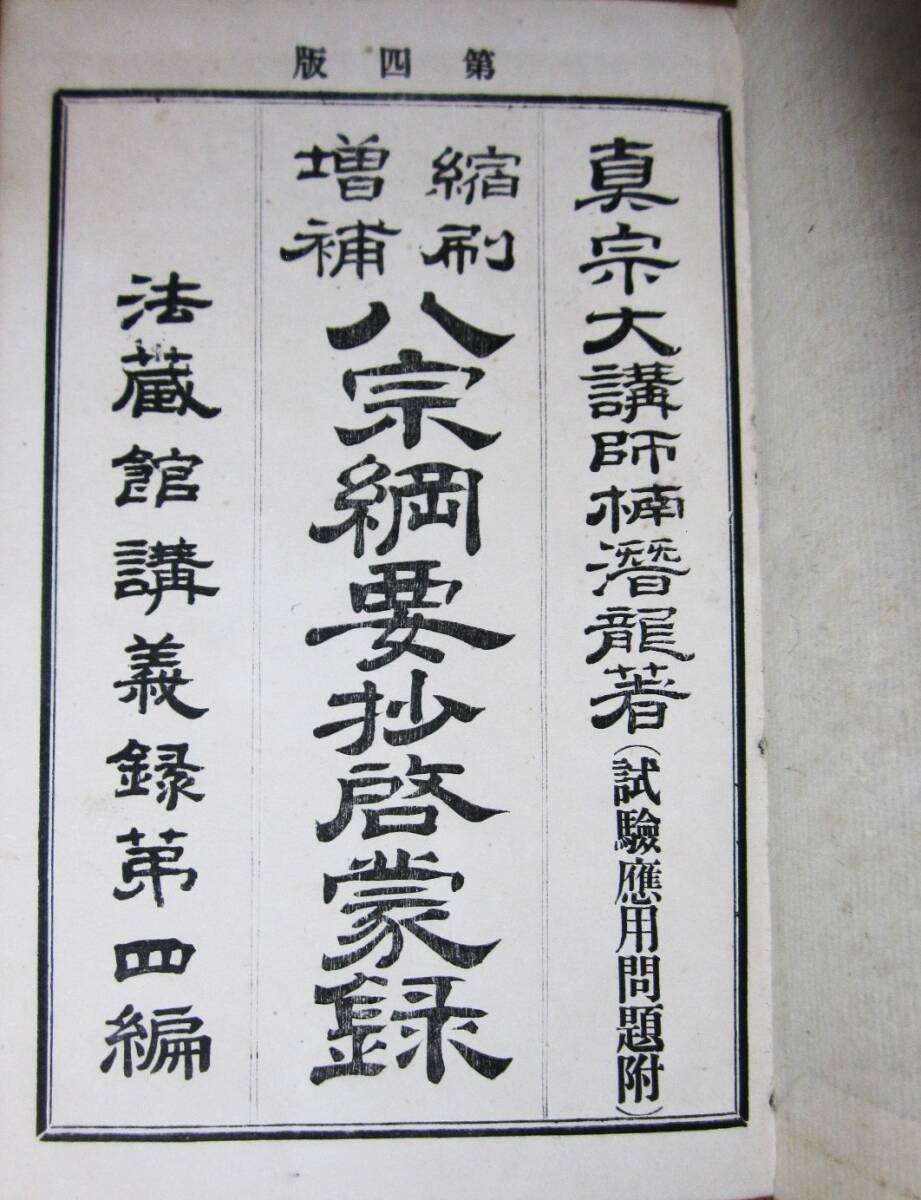 第四版
真宗大講師楠潛龍著(試驗應用問題附)
縮刷
増補
八宗綱要抄啓蒙録
法藏館講義録第四編